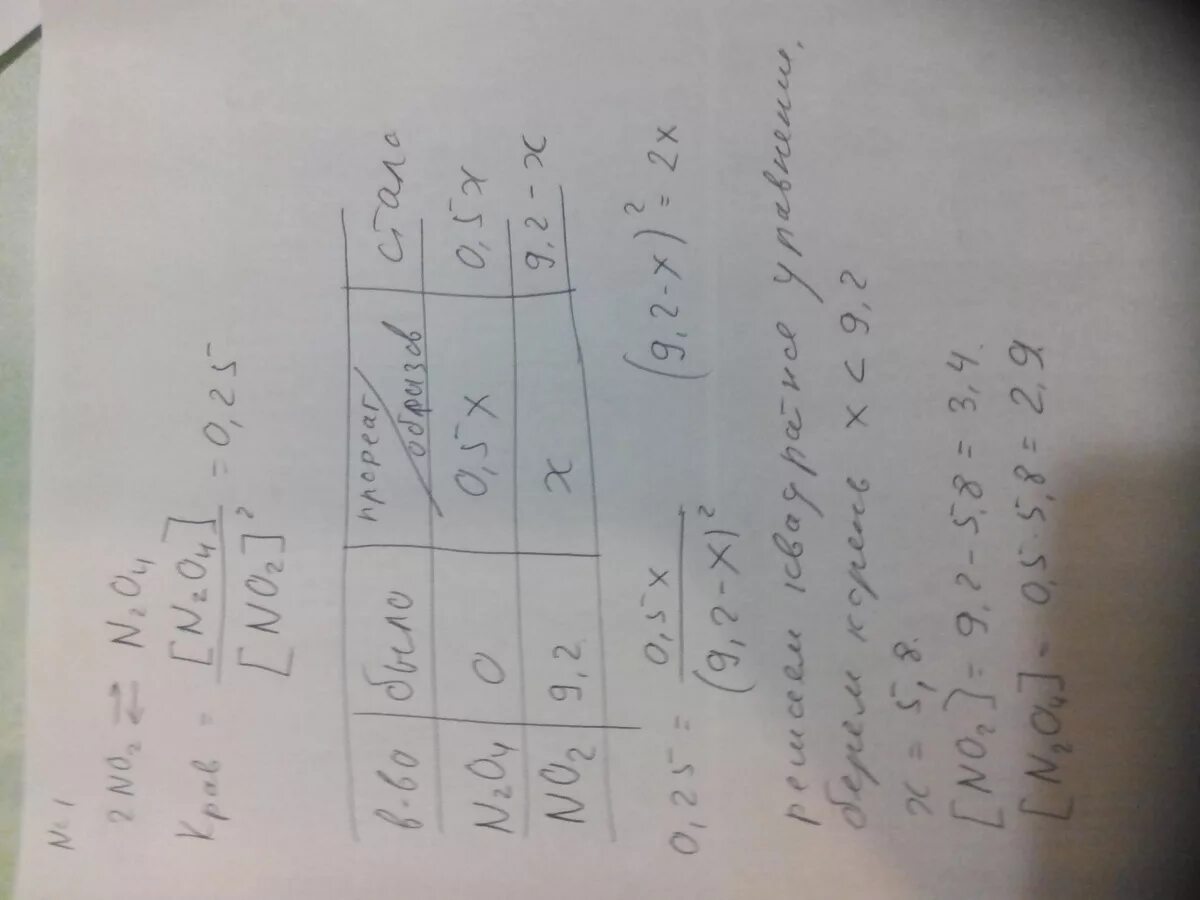 №1
2NO₂ ⇄ N₂O₄
Kрав = [N₂O₄] / [NO₂]² = 0,25
в-во | было | прореаг/образов | стало
N₂O₄ | 0 | 0,5x | 0,5x
NO₂ | 9,2 | x | 9,2 - x
0,25 = 0,5x / (9,2-x)² (9,2-x)² = 2x
решаем квадратное уравнение,
берем корень x < 9,2
x = 5,8.
[NO₂] = 9,2 - 5,8 = 3,4.
[N₂O₄] = 0,5·5,8 = 2,9